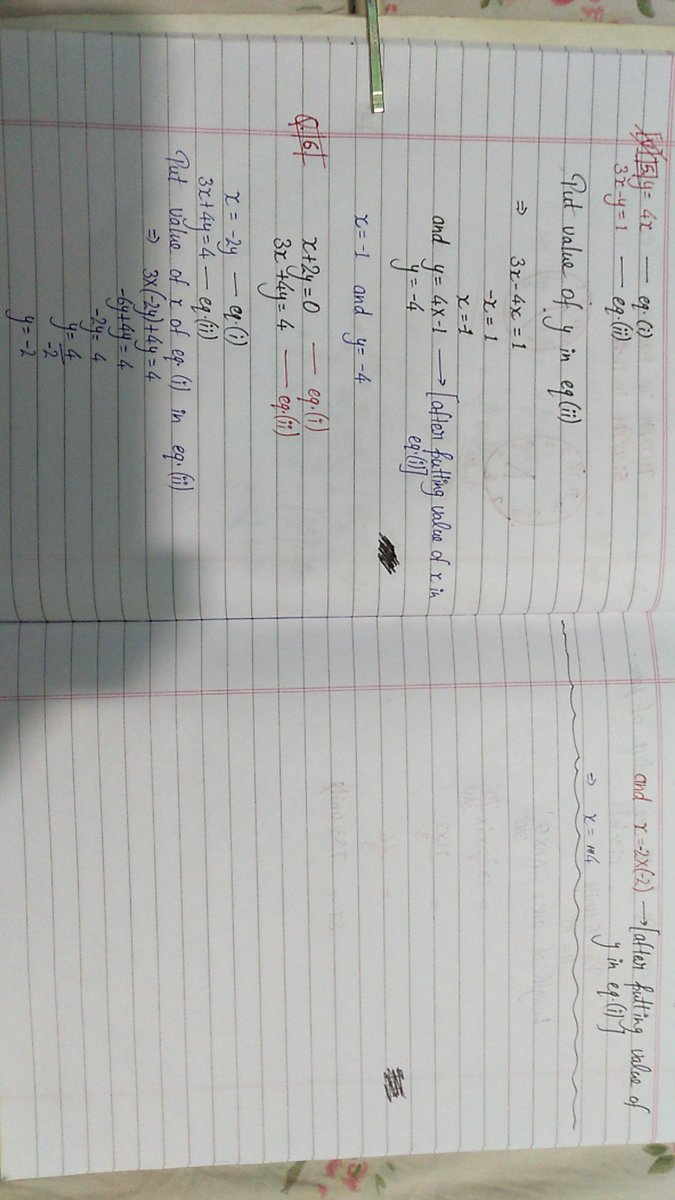 Q.5 y = 4x — eq.(i)
3x-y=1 — eq.(ii)
Put value of y in eq(ii)
⇒ 3x-4x=1
-x=1
x=-1
and y=4x-1 → [after putting value of x in
y=-4 eq.(i)]
x=-1 and y=-4
Q.6 x+2y=0 — eq.(i)
3x+4y=4 — eq.(ii)
x = -2y — eq.(i)
3x+4y=4 — eq.(ii)
Put value of x of eq.(i) in eq.(ii)
⇒ 3x(-2y)+4y=4
-6y+4y=4
-2y=4
y=4/-2
y=-2
and x=-2x(-2) → [after putting value of
y in eq.(i)]
⇒ x = 4